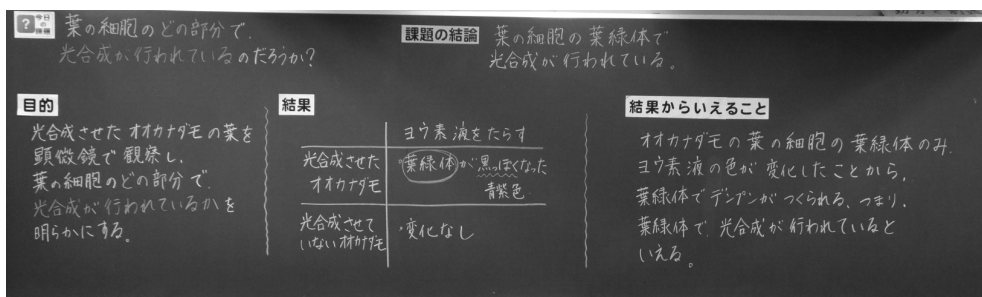 ? 今日の課題
葉の細胞のどの部分で、
光合成が行われているのだろうか?
課題の結論
葉の細胞の葉緑体で
光合成が行われている。
目的
光合成させたオオカナダモの葉を
顕微鏡で観察し、
葉の細胞のどの部分で、
光合成が行われているかを
明らかにする。
結果
ヨウ素液をたらす
光合成させた
オオカナダモ
・葉緑体が黒っぽくなった
青紫色
光合成させて
いないオオカナダモ
・変化なし
結果からいえること
オオカナダモの葉の細胞の葉緑体のみ、
ヨウ素液の色が変化したことから、
葉緑体でデンプンがつくられる、つまり、
葉緑体で、光合成が行われていると
いえる。